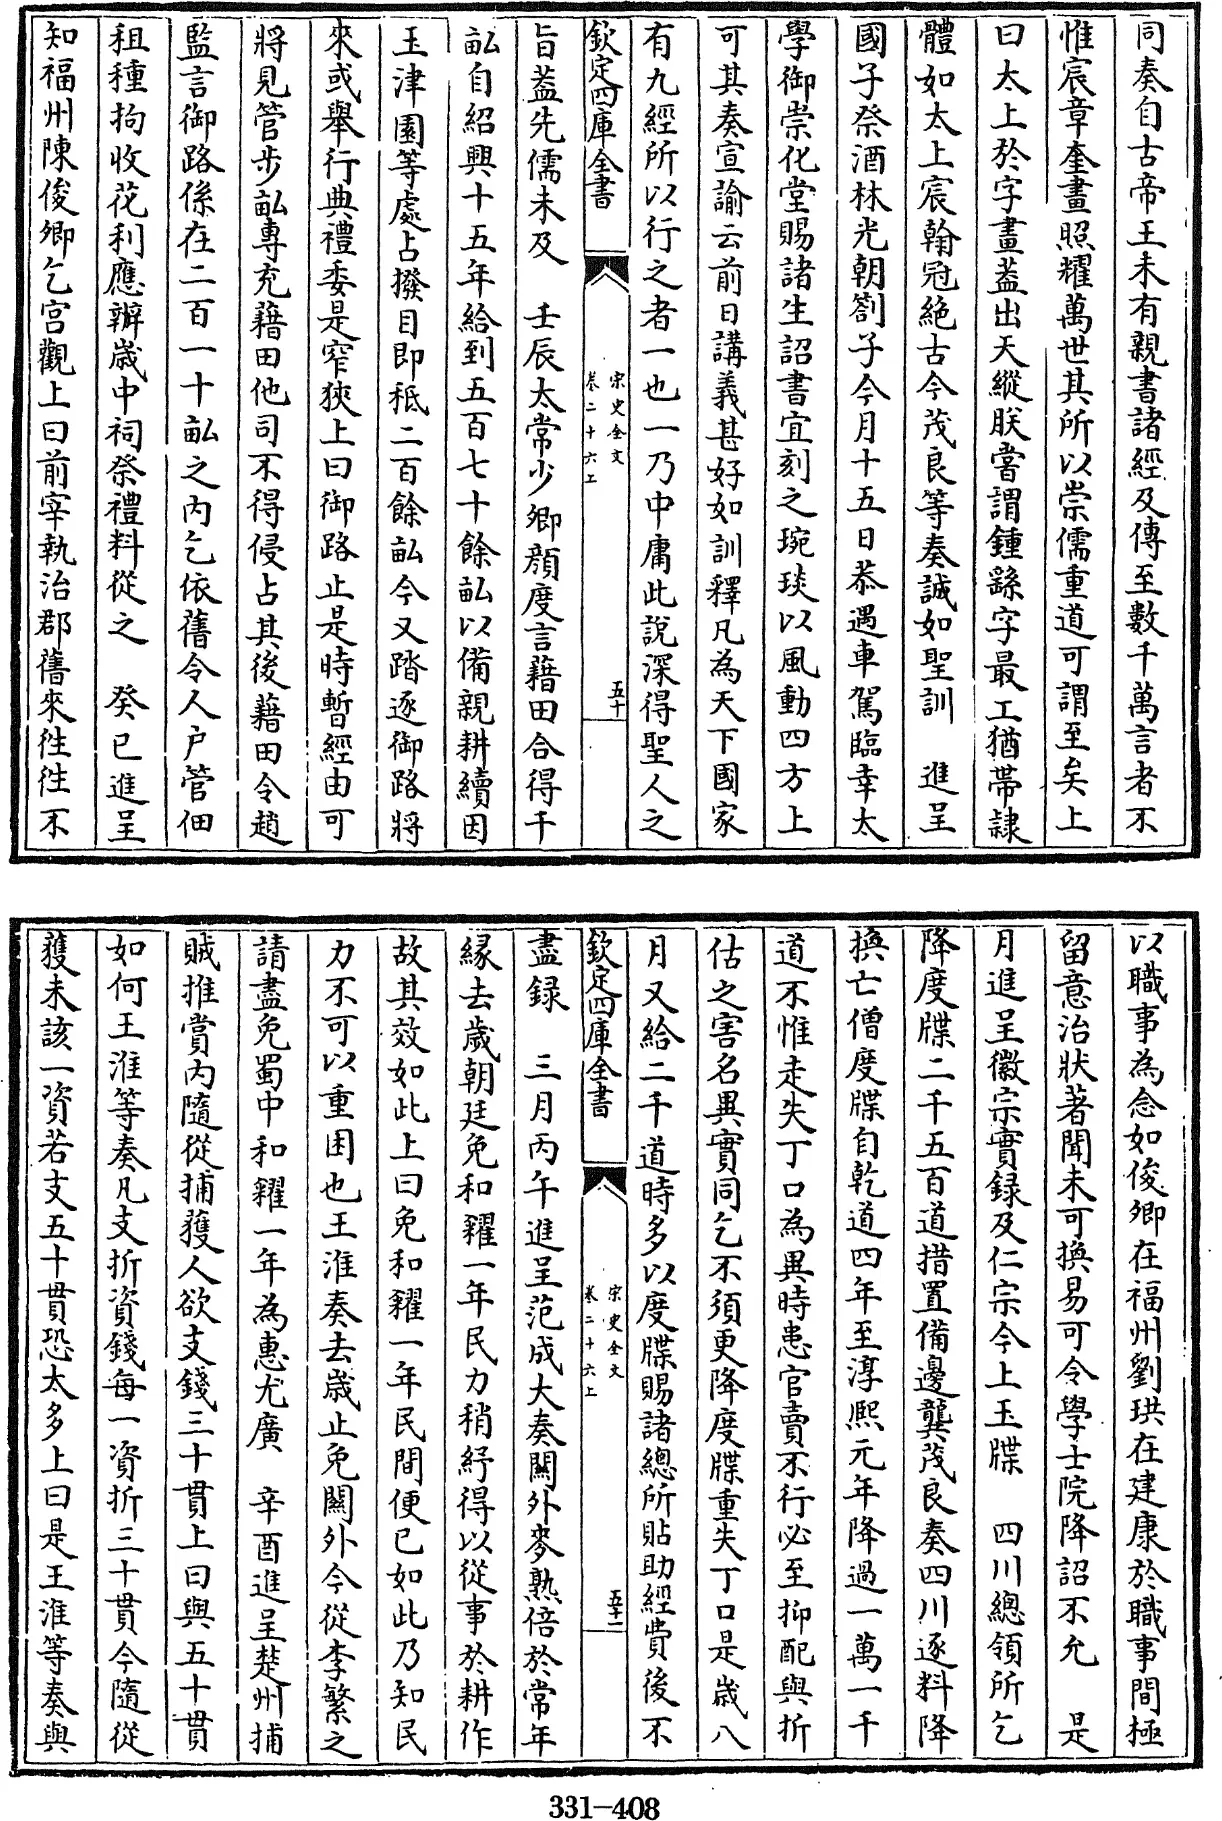 同奏自古帝王未有親書諸經及傳至數千萬言者不
惟宸章奎畫照耀萬世其所以崇儒重道可謂至矣上
曰太上於字畫葢出天縱朕嘗謂鍾繇字最工猶帶隷
體如太上宸翰冠絶古今茂良等奏誠如聖訓　進呈
國子祭酒林光朝劄子今月十五日恭遇車駕臨幸太
學御崇化堂賜諸生詔書宜刻之琬琰以風動四方上
可其奏宣諭云前日講義甚好如訓釋凡為天下國家
有九經所以行之者一也一乃中庸此說深得聖人之
欽定四庫全書
宋史全文
卷二十六上
五十
旨葢先儒未及　壬辰太常少卿顏度言藉田合得千
畝自紹興十五年給到五百七十餘畝以備親耕續因
玉津園等處占撥目即秪二百餘畝今又踏逐御路將
來或舉行典禮委是窄狹上曰御路止是時暫經由可
將見管步畝專充藉田他司不得侵占其後藉田令趙
監言御路係在二百一十畝之内乞依舊令人户管佃
租種拘收花利應辦歲中祠祭禮料從之　癸巳進呈
知福州陳俊卿乞宫觀上曰前宰執治郡舊來徃徃不
以職事為念如俊卿在福州劉珙在建康於職事間極
留意治狀著聞未可換易可令學士院降詔不允　是
月進呈徽宗實録及仁宗今上玉牒　四川總領所乞
降度牒二千五百道措置備邊龔茂良奏四川逐料降
換亡僧度牒自乾道四年至淳熙元年降過一萬一千
道不惟走失丁口為異時患官賣不行必至抑配與折
估之害名異實同乞不須更降度牒重失丁口是歲八
月又給二千道時多以度牒賜諸總所貼助經費後不
欽定四庫全書
宋史全文
卷二十六上
五十一
盡録　三月丙午進呈范成大奏關外麥熟倍於常年
縁去歲朝廷免和糴一年民力稍紓得以從事於耕作
故其效如此上曰免和糴一年民間便已如此乃知民
力不可以重困也王淮奏去歲止免關外今從李蘩之
請盡免蜀中和糴一年為惠尤廣　辛酉進呈楚州捕
賊推賞内隨從捕獲人欲支錢三十貫上曰與五十貫
如何王淮等奏凡支折資錢每一資折三十貫今隨從
獲未該一資若支五十貫恐太多上曰是王淮等奏與
331—408